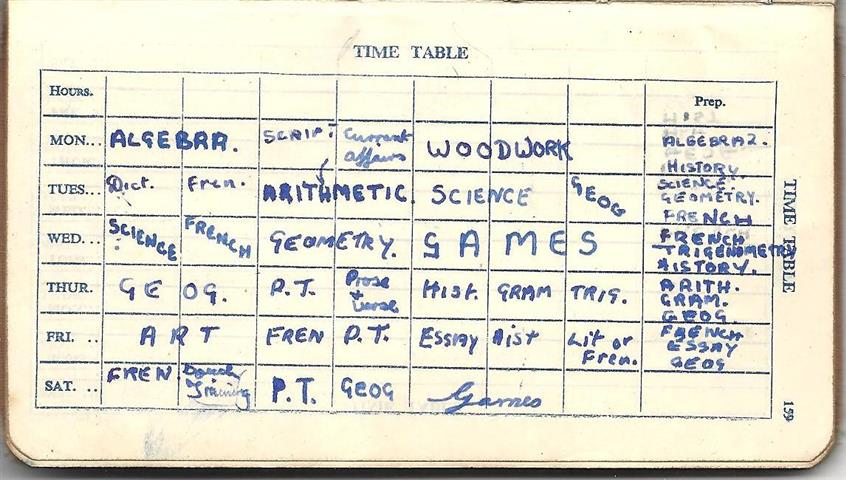 TIME TABLE
HOURS. Prep.
MON... ALGEBRA. SCRIPT Current affairs WOODWORK ALGEBRA 2. HISTORY.
TUES... Dict. Fren. ARITHMETIC. SCIENCE GEOG SCIENCE. GEOMETRY. FRENCH
WED... SCIENCE FRENCH GEOMETRY. GAMES FRENCH TRIGENOMETRY HISTORY.
THUR. GEOG. P.T. Prose + Verse HIST. GRAM TRIG. ARITH. GRAM. GEOG.
FRI. .. ART FREN P.T. ESSAY HIST Lit or Fren. FRENCH ESSAY GEOG
SAT. .. FREN Training P.T. GEOG Games
TIME TABLE
159